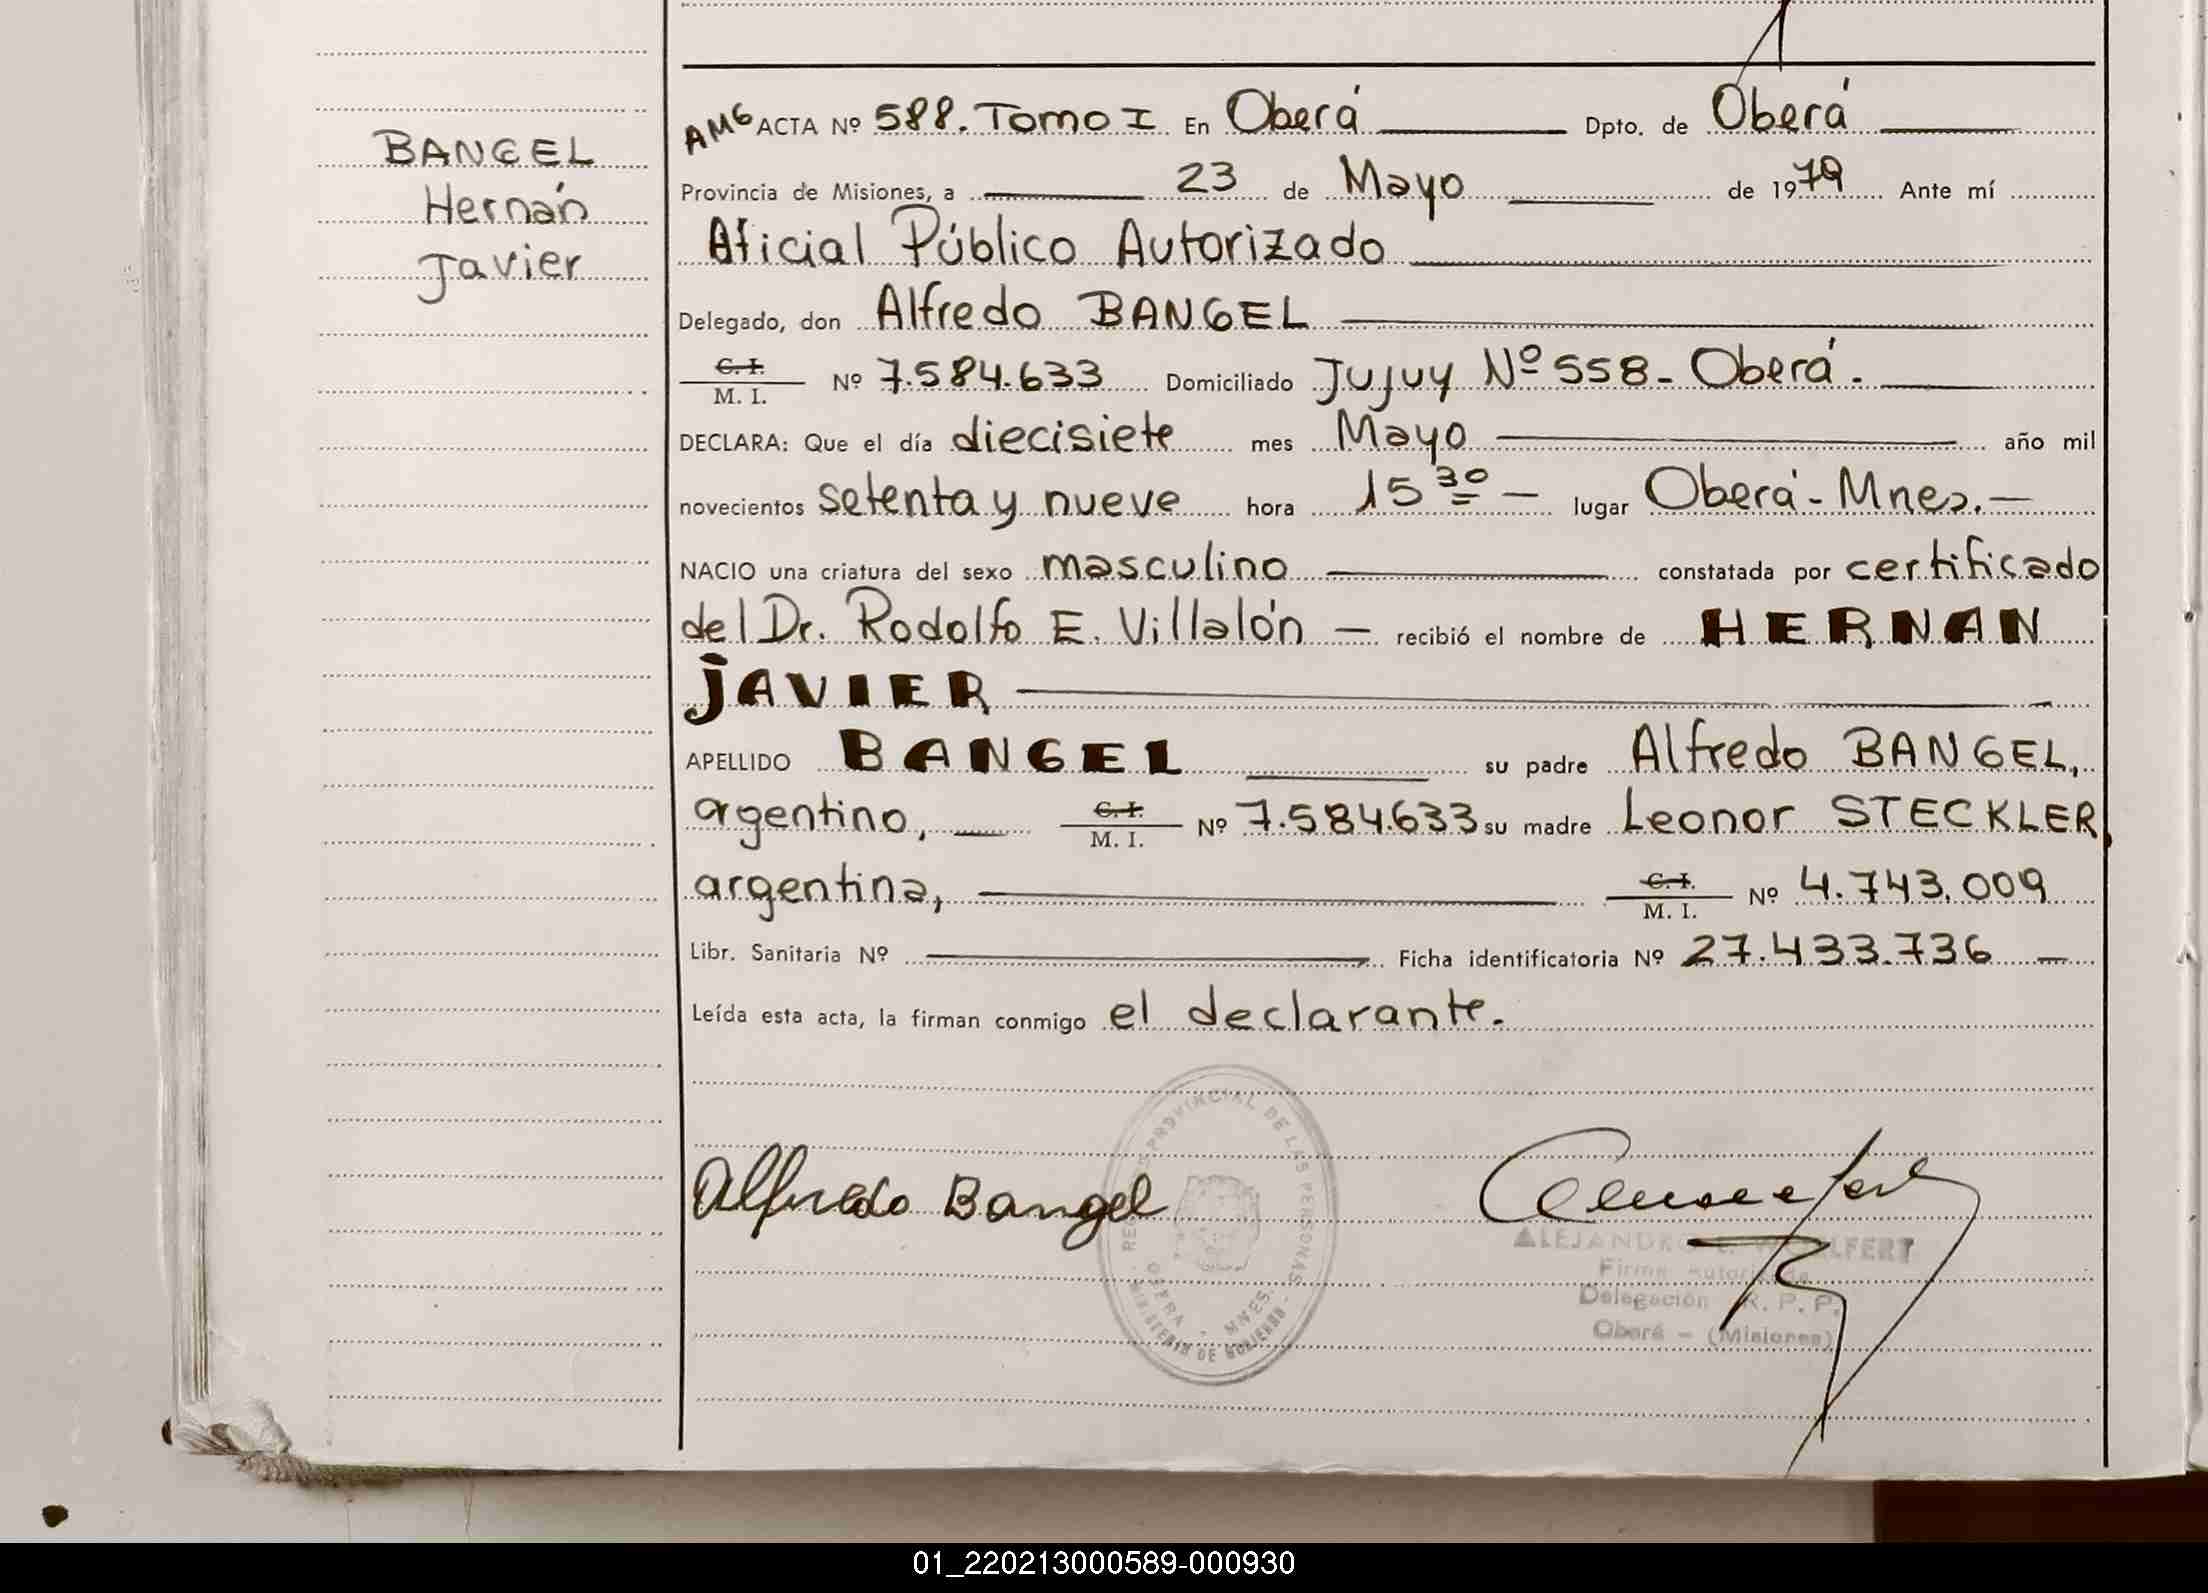 BANGEL
Hernán
Javier
AMG ACTA Nº 588. Tomo I En Oberá Dpto. de Oberá
Provincia de Misiones, a 23 de Mayo de 1979 Ante mí
Oficial Público Autorizado
Delegado, don Alfredo BANGEL
C. I.
M. I. Nº 7.584.633 Domiciliado Jujuy Nº 558- Oberá.
DECLARA: Que el día diecisiete mes Mayo año mil
novecientos setenta y nueve hora 15 30 — lugar Oberá - Mnes. —
NACIO una criatura del sexo masculino constatada por certificado
del Dr. Rodolfo E. Villalón — recibió el nombre de HERNAN
JAVIER
APELLIDO BANGEL su padre Alfredo BANGEL,
argentino, C. I.
M. I. Nº 7.584.633 su madre Leonor STECKLER,
argentina, C. I.
M. I. Nº 4.743.009
Libr. Sanitaria Nº Ficha identificatoria Nº 27.433.736 —
Leída esta acta, la firman conmigo el declarante.
Alfredo Bangel
REGIS. PROVINCIAL DE LAS PERSONAS
OBERA - MNES.
MINISTERIO DE GOBIERNO
ALEJANDRO WOLFERT
Firma Autorizada
Delegación R. P. P.
Oberá - (Misiones)
01_220213000589-000930